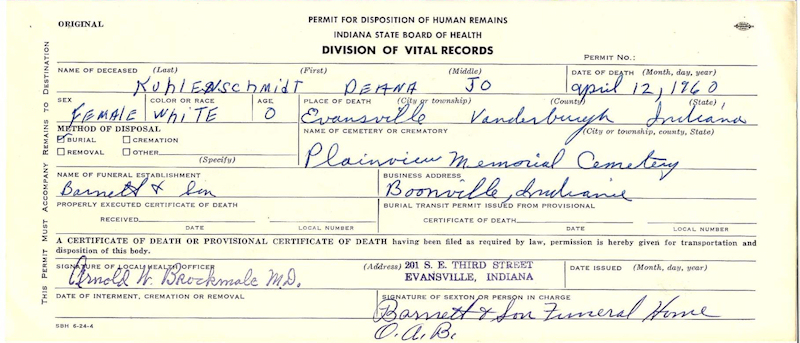 ORIGINAL
PERMIT FOR DISPOSITION OF HUMAN REMAINS
INDIANA STATE BOARD OF HEALTH
DIVISION OF VITAL RECORDS
PERMIT NO.:
THIS PERMIT MUST ACCOMPANY REMAINS TO DESTINATION
NAME OF DECEASED (Last) (First) (Middle) DATE OF DEATH (Month, day, year)
Kuhlenschmidt Deana Jo April 12, 1960
SEX COLOR OR RACE AGE PLACE OF DEATH (City or township) (County) (State)
Female White 0 Evansville Vanderburgh Indiana
METHOD OF DISPOSAL NAME OF CEMETERY OR CREMATORY (City or township, county, State)
BURIAL CREMATION
REMOVAL OTHER
(Specify)
Plainview Memorial Cemetery
NAME OF FUNERAL ESTABLISHMENT BUSINESS ADDRESS
Barnett & Son Boonville, Indiana
PROPERLY EXECUTED CERTIFICATE OF DEATH BURIAL TRANSIT PERMIT ISSUED FROM PROVISIONAL
RECEIVED CERTIFICATE OF DEATH
DATE LOCAL NUMBER DATE LOCAL NUMBER
A CERTIFICATE OF DEATH OR PROVISIONAL CERTIFICATE OF DEATH having been filed as required by law, permission is hereby given for transportation and
disposition of this body.
SIGNATURE OF LOCAL HEALTH OFFICER (Address) 201 S. E. THIRD STREET DATE ISSUED (Month, day, year)
Arnold W. Brockmole M.D. EVANSVILLE, INDIANA
DATE OF INTERMENT, CREMATION OR REMOVAL SIGNATURE OF SEXTON OR PERSON IN CHARGE
Barnett & Son Funeral Home
O.A.B.
SBH 6-24-4